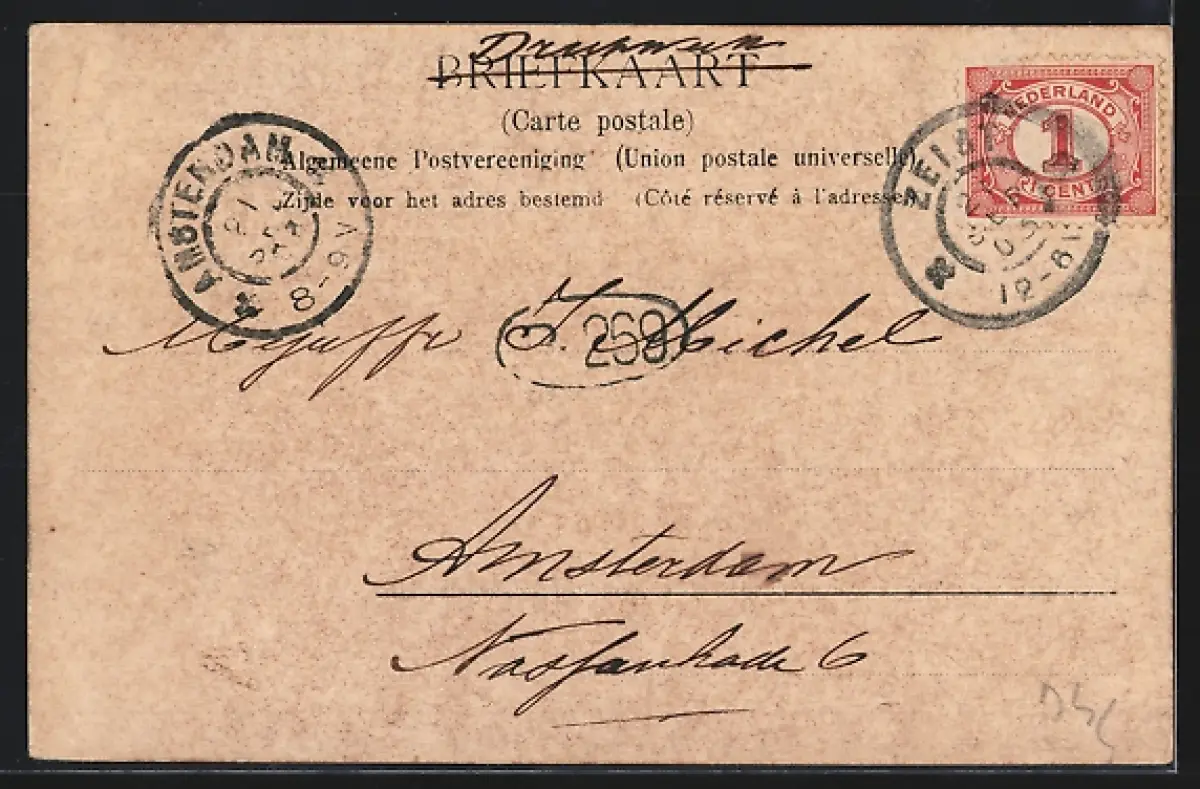 Drukwerk
BRIEFKAART
(Carte postale)
Algemeene Postvereeniging (Union postale universelle)
Zijde voor het adres bestemd (Côté réservé à l'adresse)
NEDERLAND
1
CENT
ZEIST
12-6N
AMSTERDAM
8-9V
Mejuffr J. Michel
268
Amsterdam
Nassaukade 6